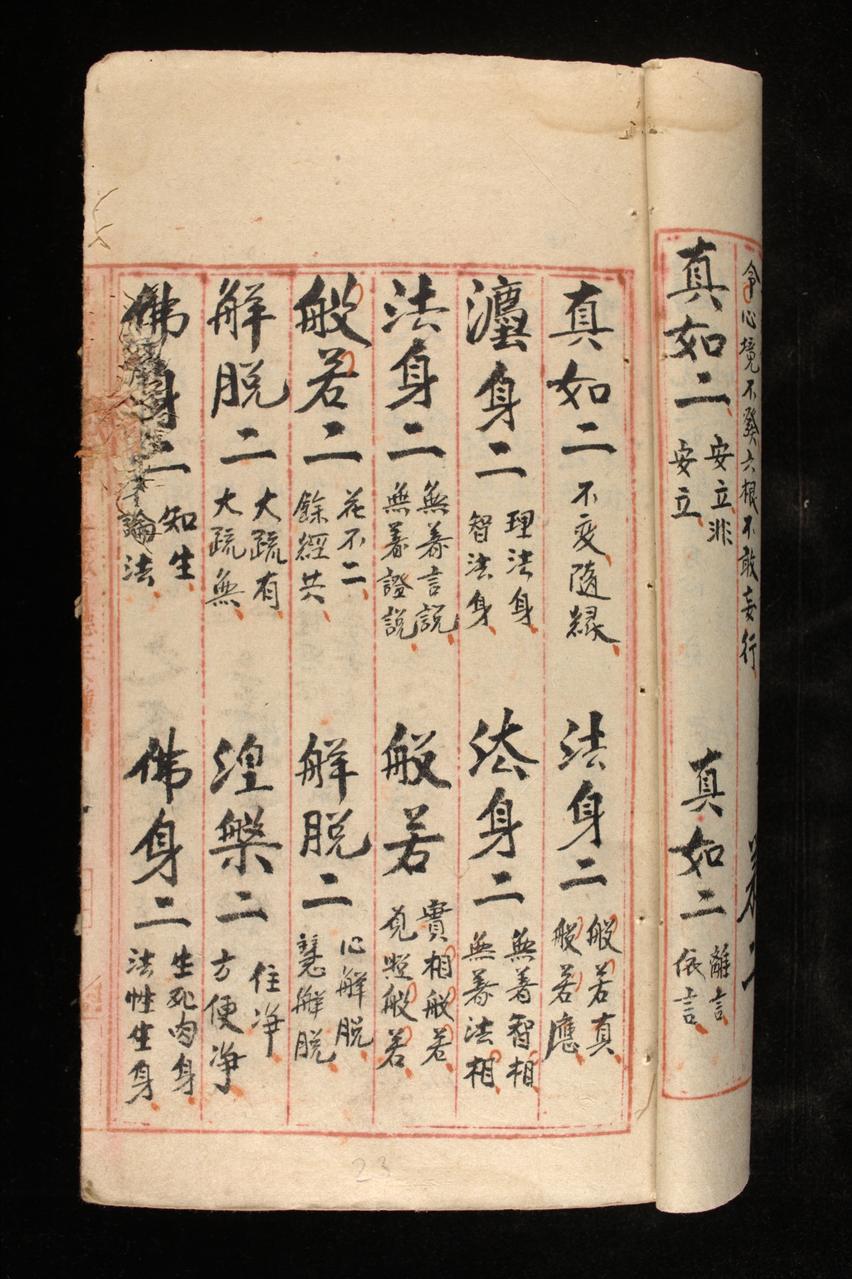 令心境不發六根不敢妄行
真如二 安立非
安立
真如二 離言
依言
真如二 不变随縁
法身二 般若真
般若應
瀍身二 理法身
智法身
法身二 無著智相
無著法相
法身二 無著言説
無著證説
般若 實相般若
觅照般若
般若二 花不二
餘經共
解脱二 心解脱
慧解脱
解脱二 大疏有
大疏無
涅槃二 住净
方便净
佛身二 知生
論法
佛身二 生死肉身
法性生身
23